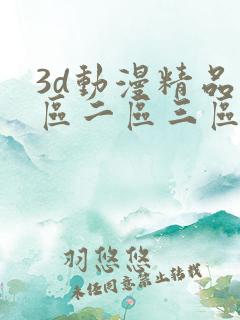 3d動漫精品
區二區三區
羽悠悠
未任同意禁止转载